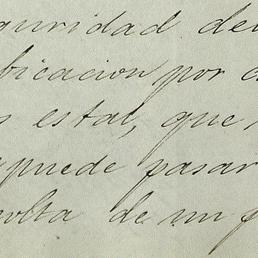 guridad de
ficacion por
s estal, que
puede pasar
olta de un f